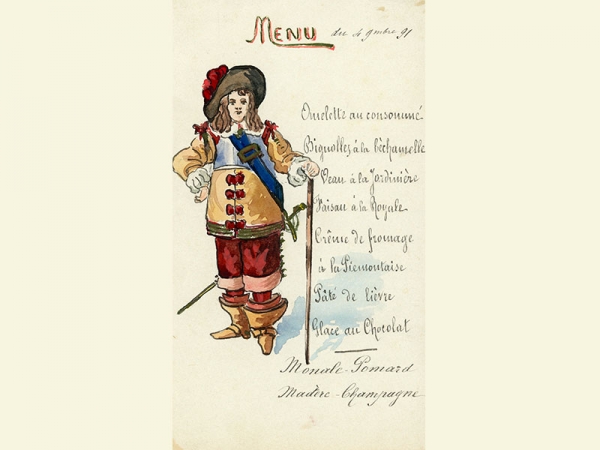 MENU du 4 9mbre 91
Omelette au consommé
Bignolles à la béchamelle
Veau à la Jardinière
Faisan à la Royale
Crême de fromage
à la Piemontaise
Pâté de lièvre
Glace au Chocolat
Monale - Pomard
Madère - Champagne